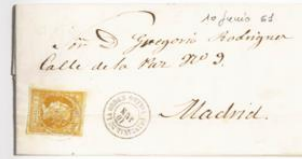 10 Junio 61
Sor. D. Gregorio Rodriguez
Calle de la Paz Nº 9.
Madrid.